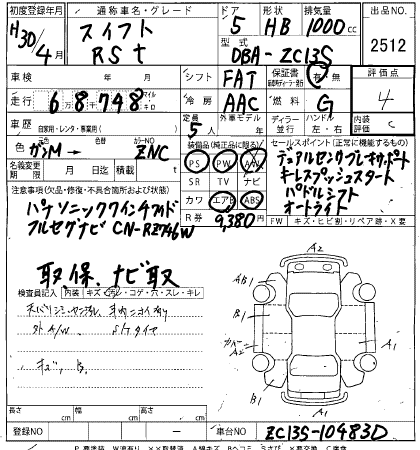 初度登録年月 通称車名・グレード ドア 形状 排気量 出品NO.
H30/4月 スイフト RSt 5 HB 1000cc 2512
型式 DBA-ZC13S
車検 年 月 シフト FAT 保証書 有・無 評価点
走行 68748 マイル キロ 冷房 AAC 燃料 G 4
車歴 自家用・レンタ・事業用( ) 定員 5人 外車モデル 年 ディーラー 並行 ハンドル 左・右 内装 C
色 ガンM→ カラーNO ZNC 装備品(純正品に限る) セールスポイント(正常に機能するもの)
名義変更期限 月 日 積載 t PS PW AW
SR TV ナビ
カワ エアB ABS
R券 9,380円
デュアルセンサーブレーキサポート
キーレスプッシュスタート
パドルシフト
オートライト
注意事項(欠品・修復・不具合箇所および状態)
パナソニック7インチワイド
フルセグナビ CN-RZ746W
FW キズ・ヒビ割・リペア跡・×要
取、保、ナビ取
検査員記入 内装 キズ・汚レ・コゲ・穴・スレ・キレ
外A/W
S/Tタイヤ
キズ、B
A2
AB1 A1
B1
A2
B1 A1
長さ cm 幅 cm 高さ cm
登録NO ー 車台NO ZC13S-10483D